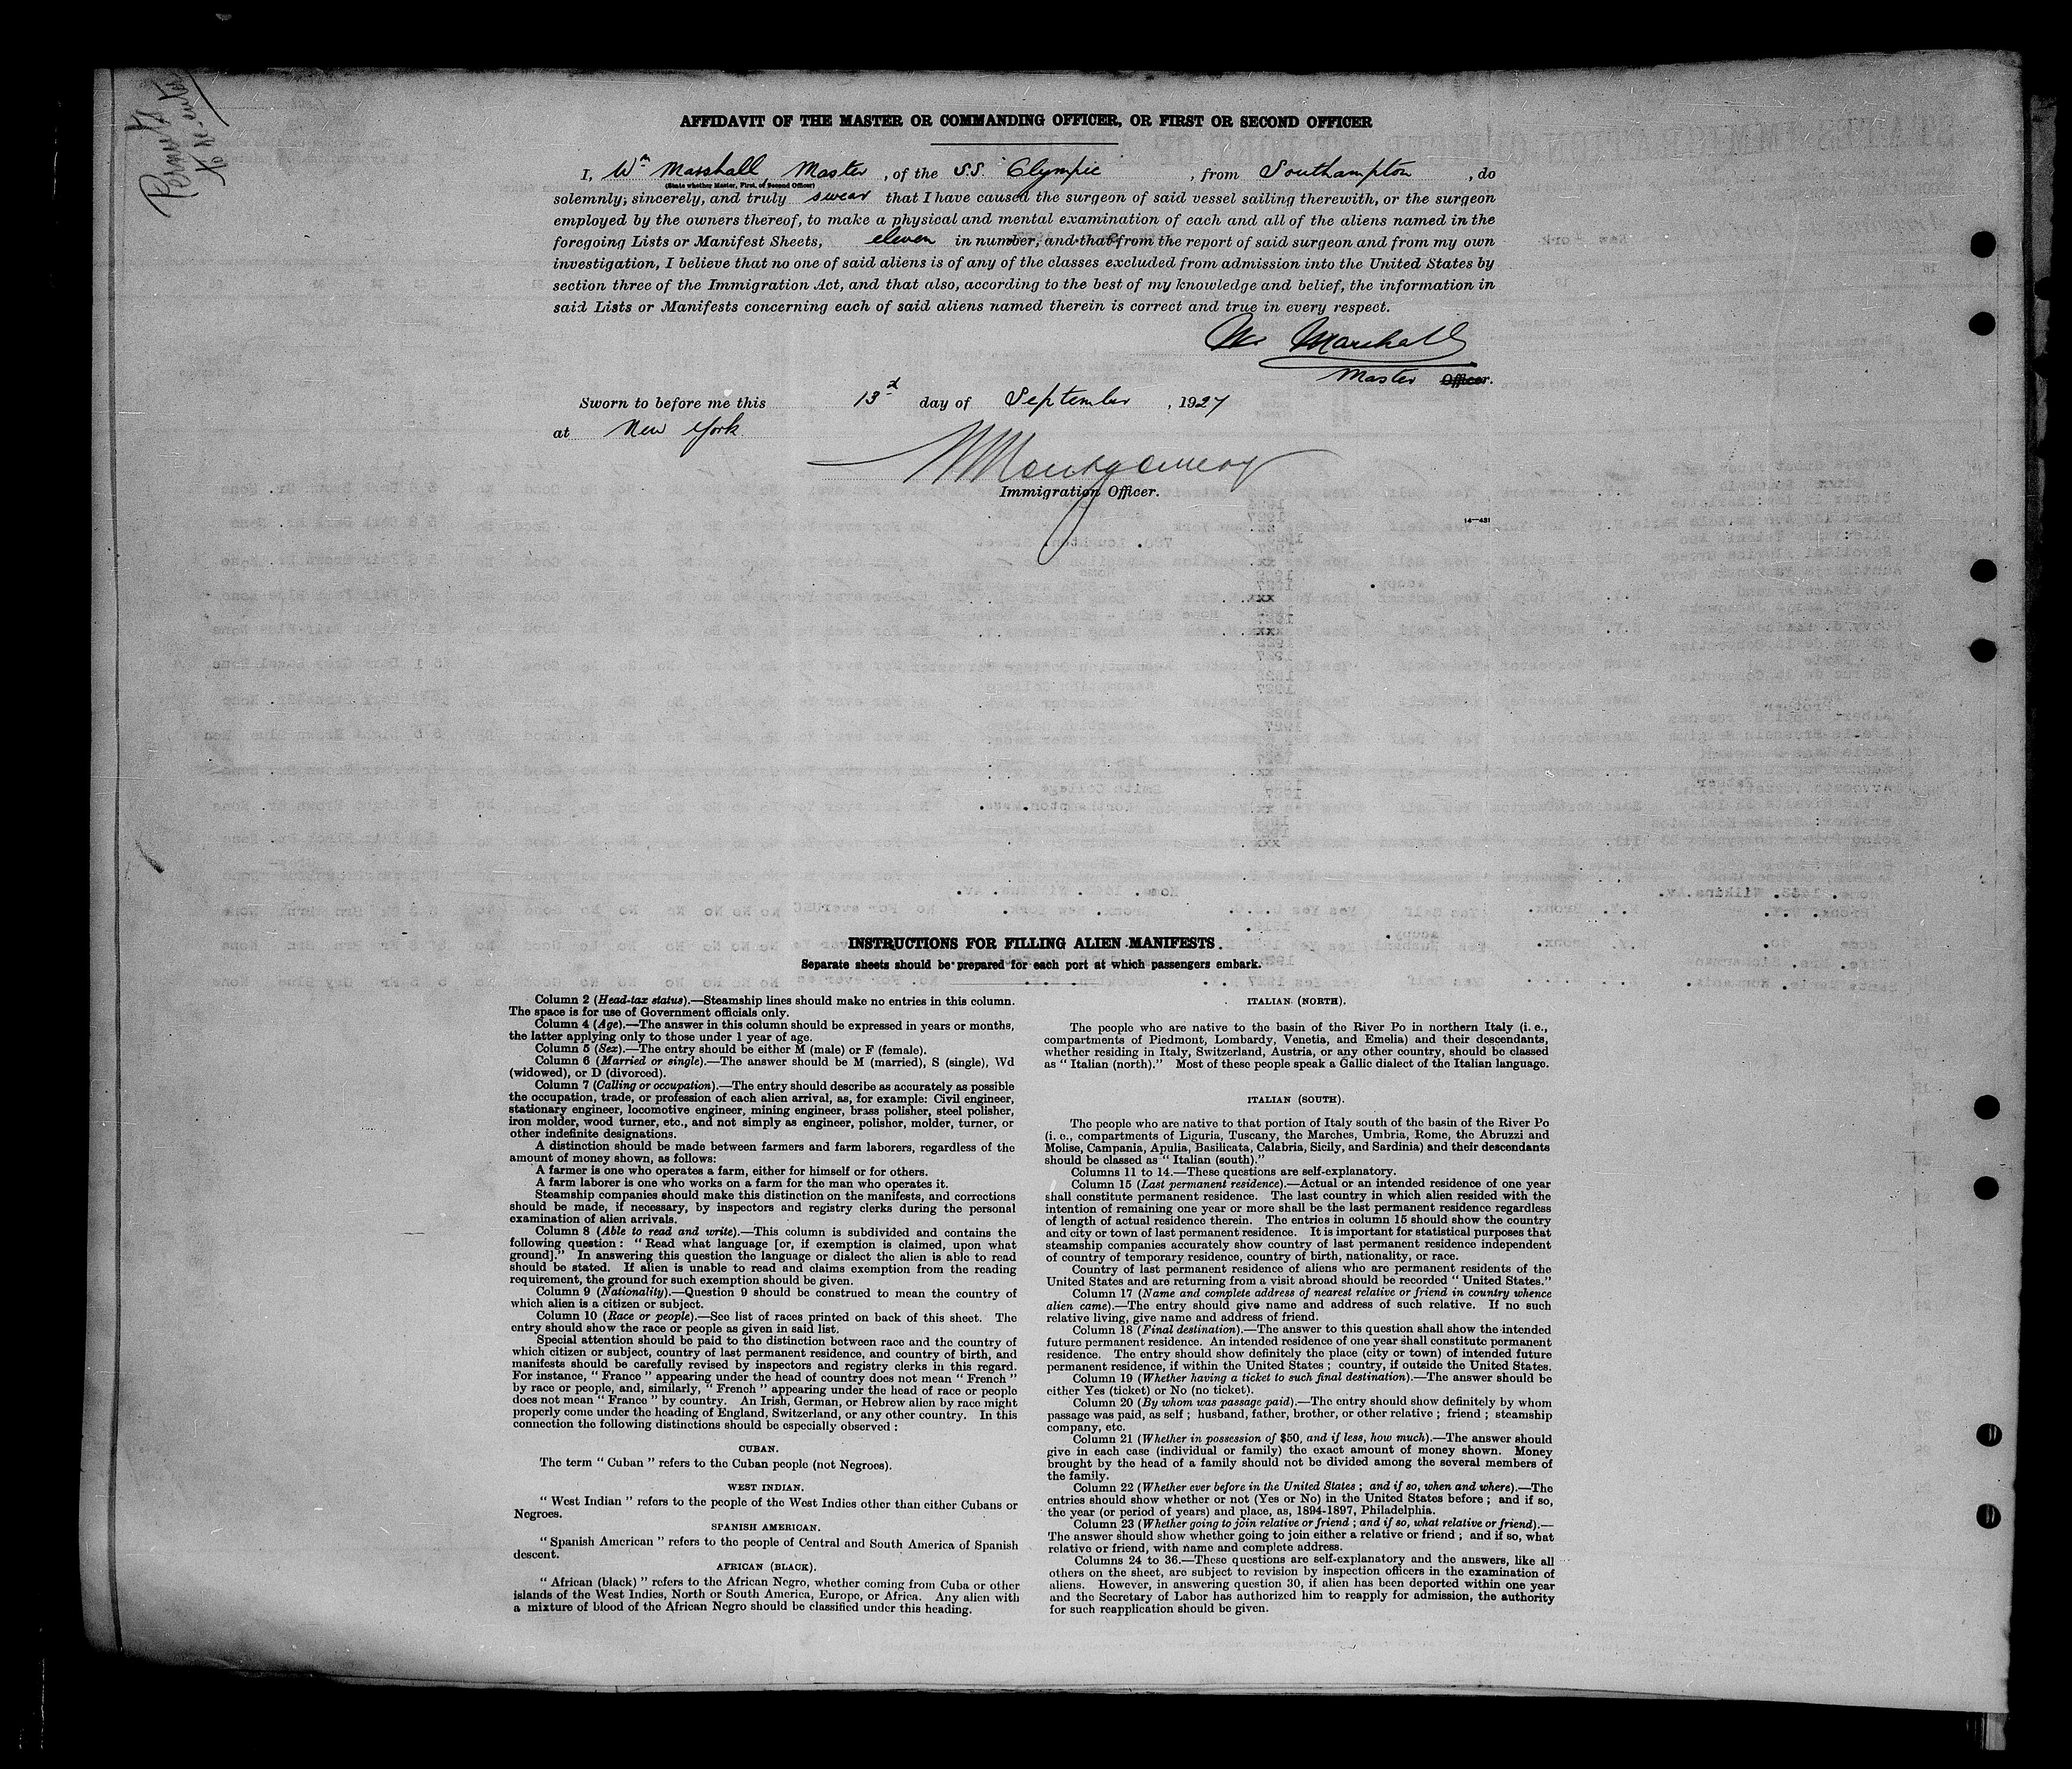 Permit
to re-enter
AFFIDAVIT OF THE MASTER OR COMMANDING OFFICER, OR FIRST OR SECOND OFFICER
I, Wm Marshall, Master, of the S.S. Olympic, from Southampton, do
(State whether Master, First, or Second Officer)
solemnly, sincerely, and truly swear that I have caused the surgeon of said vessel sailing therewith, or the surgeon
employed by the owners thereof, to make a physical and mental examination of each and all of the aliens named in the
foregoing Lists or Manifest Sheets, eleven in number, and that from the report of said surgeon and from my own
investigation, I believe that no one of said aliens is of any of the classes excluded from admission into the United States by
section three of the Immigration Act, and that also, according to the best of my knowledge and belief, the information in
said Lists or Manifests concerning each of said aliens named therein is correct and true in every respect.
W. Marshall
Master Officer.
Sworn to before me this 13d day of September, 1927
at New York
Montgomery
Immigration Officer.
14—431
INSTRUCTIONS FOR FILLING ALIEN MANIFESTS
Separate sheets should be prepared for each port at which passengers embark.
Column 2 (Head-tax status).—Steamship lines should make no entries in this column.
The space is for use of Government officials only.
Column 4 (Age).—The answer in this column should be expressed in years or months,
the latter applying only to those under 1 year of age.
Column 5 (Sex).—The entry should be either M (male) or F (female).
Column 6 (Married or single).—The answer should be M (married), S (single), Wd
(widowed), or D (divorced).
Column 7 (Calling or occupation).—The entry should describe as accurately as possible
the occupation, trade, or profession of each alien arrival, as, for example: Civil engineer,
stationary engineer, locomotive engineer, mining engineer, brass polisher, steel polisher,
iron molder, wood turner, etc., and not simply as engineer, polisher, molder, turner, or
other indefinite designations.
A distinction should be made between farmers and farm laborers, regardless of the
amount of money shown, as follows:
A farmer is one who operates a farm, either for himself or for others.
A farm laborer is one who works on a farm for the man who operates it.
Steamship companies should make this distinction on the manifests, and corrections
should be made, if necessary, by inspectors and registry clerks during the personal
examination of alien arrivals.
Column 8 (Able to read and write).—This column is subdivided and contains the
following question: "Read what language [or, if exemption is claimed, upon what
ground]." In answering this question the language or dialect the alien is able to read
should be stated. If alien is unable to read and claims exemption from the reading
requirement, the ground for such exemption should be given.
Column 9 (Nationality).—Question 9 should be construed to mean the country of
which alien is a citizen or subject.
Column 10 (Race or people).—See list of races printed on back of this sheet. The
entry should show the race or people as given in said list.
Special attention should be paid to the distinction between race and the country of
which citizen or subject, country of last permanent residence, and country of birth, and
manifests should be carefully revised by inspectors and registry clerks in this regard.
For instance, "France" appearing under the head of country does not mean "French"
by race or people, and, similarly, "French" appearing under the head of race or people
does not mean "France" by country. An Irish, German, or Hebrew alien by race might
properly come under the heading of England, Switzerland, or any other country. In this
connection the following distinctions should be especially observed:
CUBAN.
The term "Cuban" refers to the Cuban people (not Negroes).
WEST INDIAN.
"West Indian" refers to the people of the West Indies other than either Cubans or
Negroes.
SPANISH AMERICAN.
"Spanish American" refers to the people of Central and South America of Spanish
descent.
AFRICAN (BLACK).
"African (black)" refers to the African Negro, whether coming from Cuba or other
islands of the West Indies, North or South America, Europe, or Africa. Any alien with
a mixture of blood of the African Negro should be classified under this heading.
ITALIAN (NORTH).
The people who are native to the basin of the River Po in northern Italy (i. e.,
compartments of Piedmont, Lombardy, Venetia, and Emelia) and their descendants,
whether residing in Italy, Switzerland, Austria, or any other country, should be classed
as "Italian (north)." Most of these people speak a Gallic dialect of the Italian language.
ITALIAN (SOUTH).
The people who are native to that portion of Italy south of the basin of the River Po
(i. e., compartments of Liguria, Tuscany, the Marches, Umbria, Rome, the Abruzzi and
Molise, Campania, Apulia, Basilicata, Calabria, Sicily, and Sardinia) and their descendants
should be classed as "Italian (south)."
Columns 11 to 14.—These questions are self-explanatory.
Column 15 (Last permanent residence).—Actual or an intended residence of one year
shall constitute permanent residence. The last country in which alien resided with the
intention of remaining one year or more shall be the last permanent residence regardless
of length of actual residence therein. The entries in column 15 should show the country
and city or town of last permanent residence. It is important for statistical purposes that
steamship companies accurately show country of last permanent residence independent
of country of temporary residence, country of birth, nationality, or race.
Country of last permanent residence of aliens who are permanent residents of the
United States and are returning from a visit abroad should be recorded "United States."
Column 17 (Name and complete address of nearest relative or friend in country whence
alien came).—The entry should give name and address of such relative. If no such
relative living, give name and address of friend.
Column 18 (Final destination).—The answer to this question shall show the intended
future permanent residence. An intended residence of one year shall constitute permanent
residence. The entry should show definitely the place (city or town) of intended future
permanent residence, if within the United States; country, if outside the United States.
Column 19 (Whether having a ticket to such final destination).—The answer should be
either Yes (ticket) or No (no ticket).
Column 20 (By whom was passage paid).—The entry should show definitely by whom
passage was paid, as self; husband, father, brother, or other relative; friend; steamship
company, etc.
Column 21 (Whether in possession of $50, and if less, how much).—The answer should
give in each case (individual or family) the exact amount of money shown. Money
brought by the head of a family should not be divided among the several members of
the family.
Column 22 (Whether ever before in the United States; and if so, when and where).—The
entries should show whether or not (Yes or No) in the United States before; and if so,
the year (or period of years) and place, as, 1894-1897, Philadelphia.
Column 23 (Whether going to join relative or friend; and if so, what relative or friend).—
The answer should show whether going to join either a relative or friend; and if so, what
relative or friend, with name and complete address.
Columns 24 to 36.—These questions are self-explanatory and the answers, like all
others on the sheet, are subject to revision by inspection officers in the examination of
aliens. However, in answering question 30, if alien has been deported within one year
and the Secretary of Labor has authorized him to reapply for admission, the authority
for such reapplication should be given.